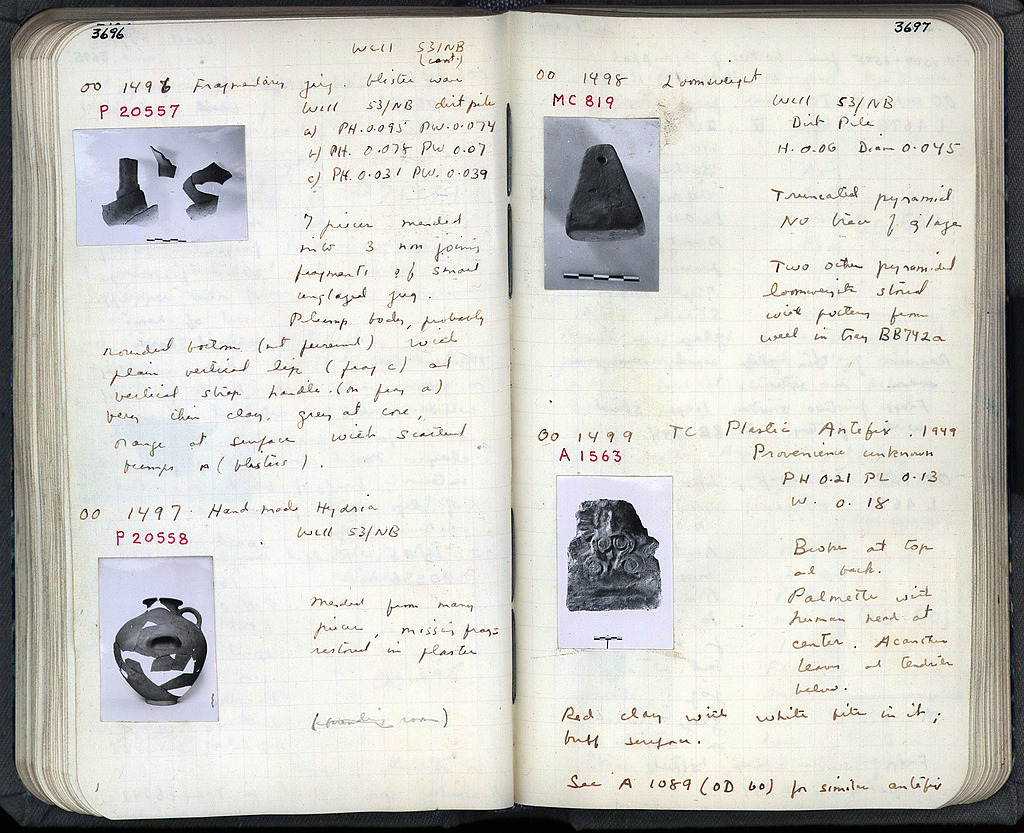 3696
Well 53/NB
(cont.)
OO 1496 Fragmentary jug. blister ware
P 20557
Well 53/NB dirt pile
a) PH. 0.095 PW. 0.074
b) PH. 0.078 PW 0.07
c) PH. 0.031 PW. 0.039
7 pieces mended
into 3 non joining
fragments of small
unglazed jug.
Plump body, probably
rounded bottom (not preserved) with
plain vertical lip (frag c) and
vertical strap handle. (on frag a)
very thin clay, grey at core,
orange at surface with scattered
bumps (blisters).
OO 1497. Hand-made Hydria
P 20558
Well 53/NB
Mended from many
pieces, missing frags
restored in plaster
3697
OO 1498 Loomweight
MC 819
Well 53/NB
Dirt Pile
H. 0.06 Diam 0.045
Truncated pyramid
No trace of glaze
Two other pyramidal
loomweights stored
with pottery from
well in tray BB742a
OO 1499 TC Plastic Antefix. 1949
A 1563
Provenience unknown
PH 0.21 PL 0.13
W. 0.18
Broken at top
and back.
Palmette with
human head at
center. Acanthus
leaves and tendrils
below.
Red clay with white bits in it;
buff surface.
See A 1089 (OD 60) for similar antefix